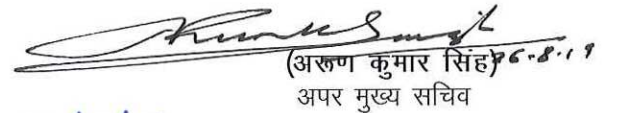 (अरूण कुमार सिंह) 26-8-19
अपर मुख्य सचिव